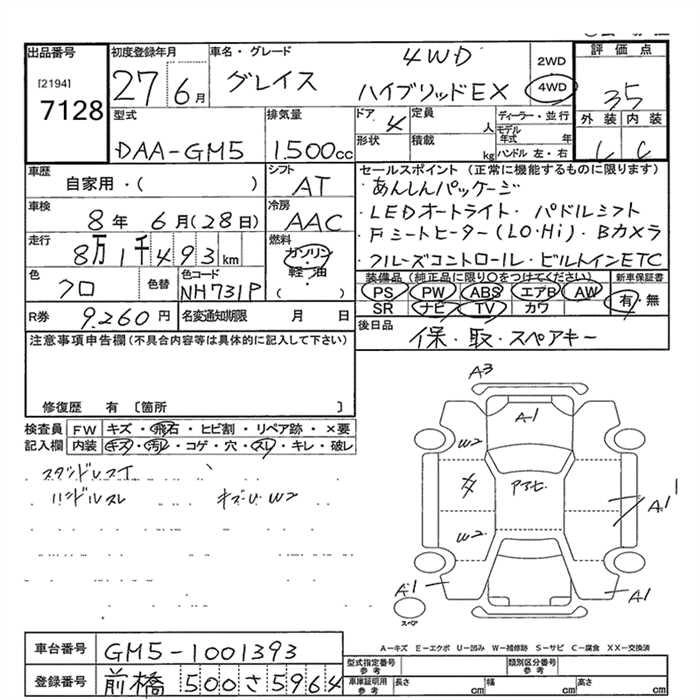 出品番号 初度登録年月 車名・グレード 4WD 2WD 評価点
[2194] 7128 27 6月 グレイス ハイブリッドEX 4WD 35
型式 排気量 ドア 定員 ディーラー・並行 外装 内装
DAA-GM5 1.500cc 4 人 モデル年式 年
形状 積載 kg ハンドル 左・右 C
車歴 シフト セールスポイント (正常に機能するものに限ります)
自家用・( ) AT あんしんパッケージ
車検 冷房 ・LEDオートライト・パドルシフト
8年 6月(28日) AAC ・Fシートヒーター(LO・Hi)・Bカメラ
走行 8万1千493km 燃料 ガソリン 軽・油 ( ) ・クルーズコントロール・ビルトインETC
色 クロ 色替 色コード NH731P 装備品 (純正品に限り○をつけてください) 新車保証書
PS PW ABS エアB AW 有・無
SR ナビ TV カワ
R券 9.260円 名変通知期限 月 日 後日品 保・取・スペアキー
注意事項申告欄 (不具合内容等は具体的に記入して下さい)
修復歴 有 〔箇所 〕
検査員 FW キズ・飛石・ヒビ割・リペア跡・×要
記入欄 内装 キズ・汚レ・コゲ・穴・スレ・キレ・破レ
スタッドレス
ハンドルスレ キズ・U W2
A3
A1
W2
W2
A1
A1
A1
スペア
A-キズ E-エクボ U-凹み W-補修跡 S-サビ C-腐食 XX-交換済
車台番号 GM5-1001393
型式指定番号 参考 類別区分番号 参考
登録番号 前橋 500 さ 5964
車庫証明用 参考 長さ cm 幅 cm 高さ cm